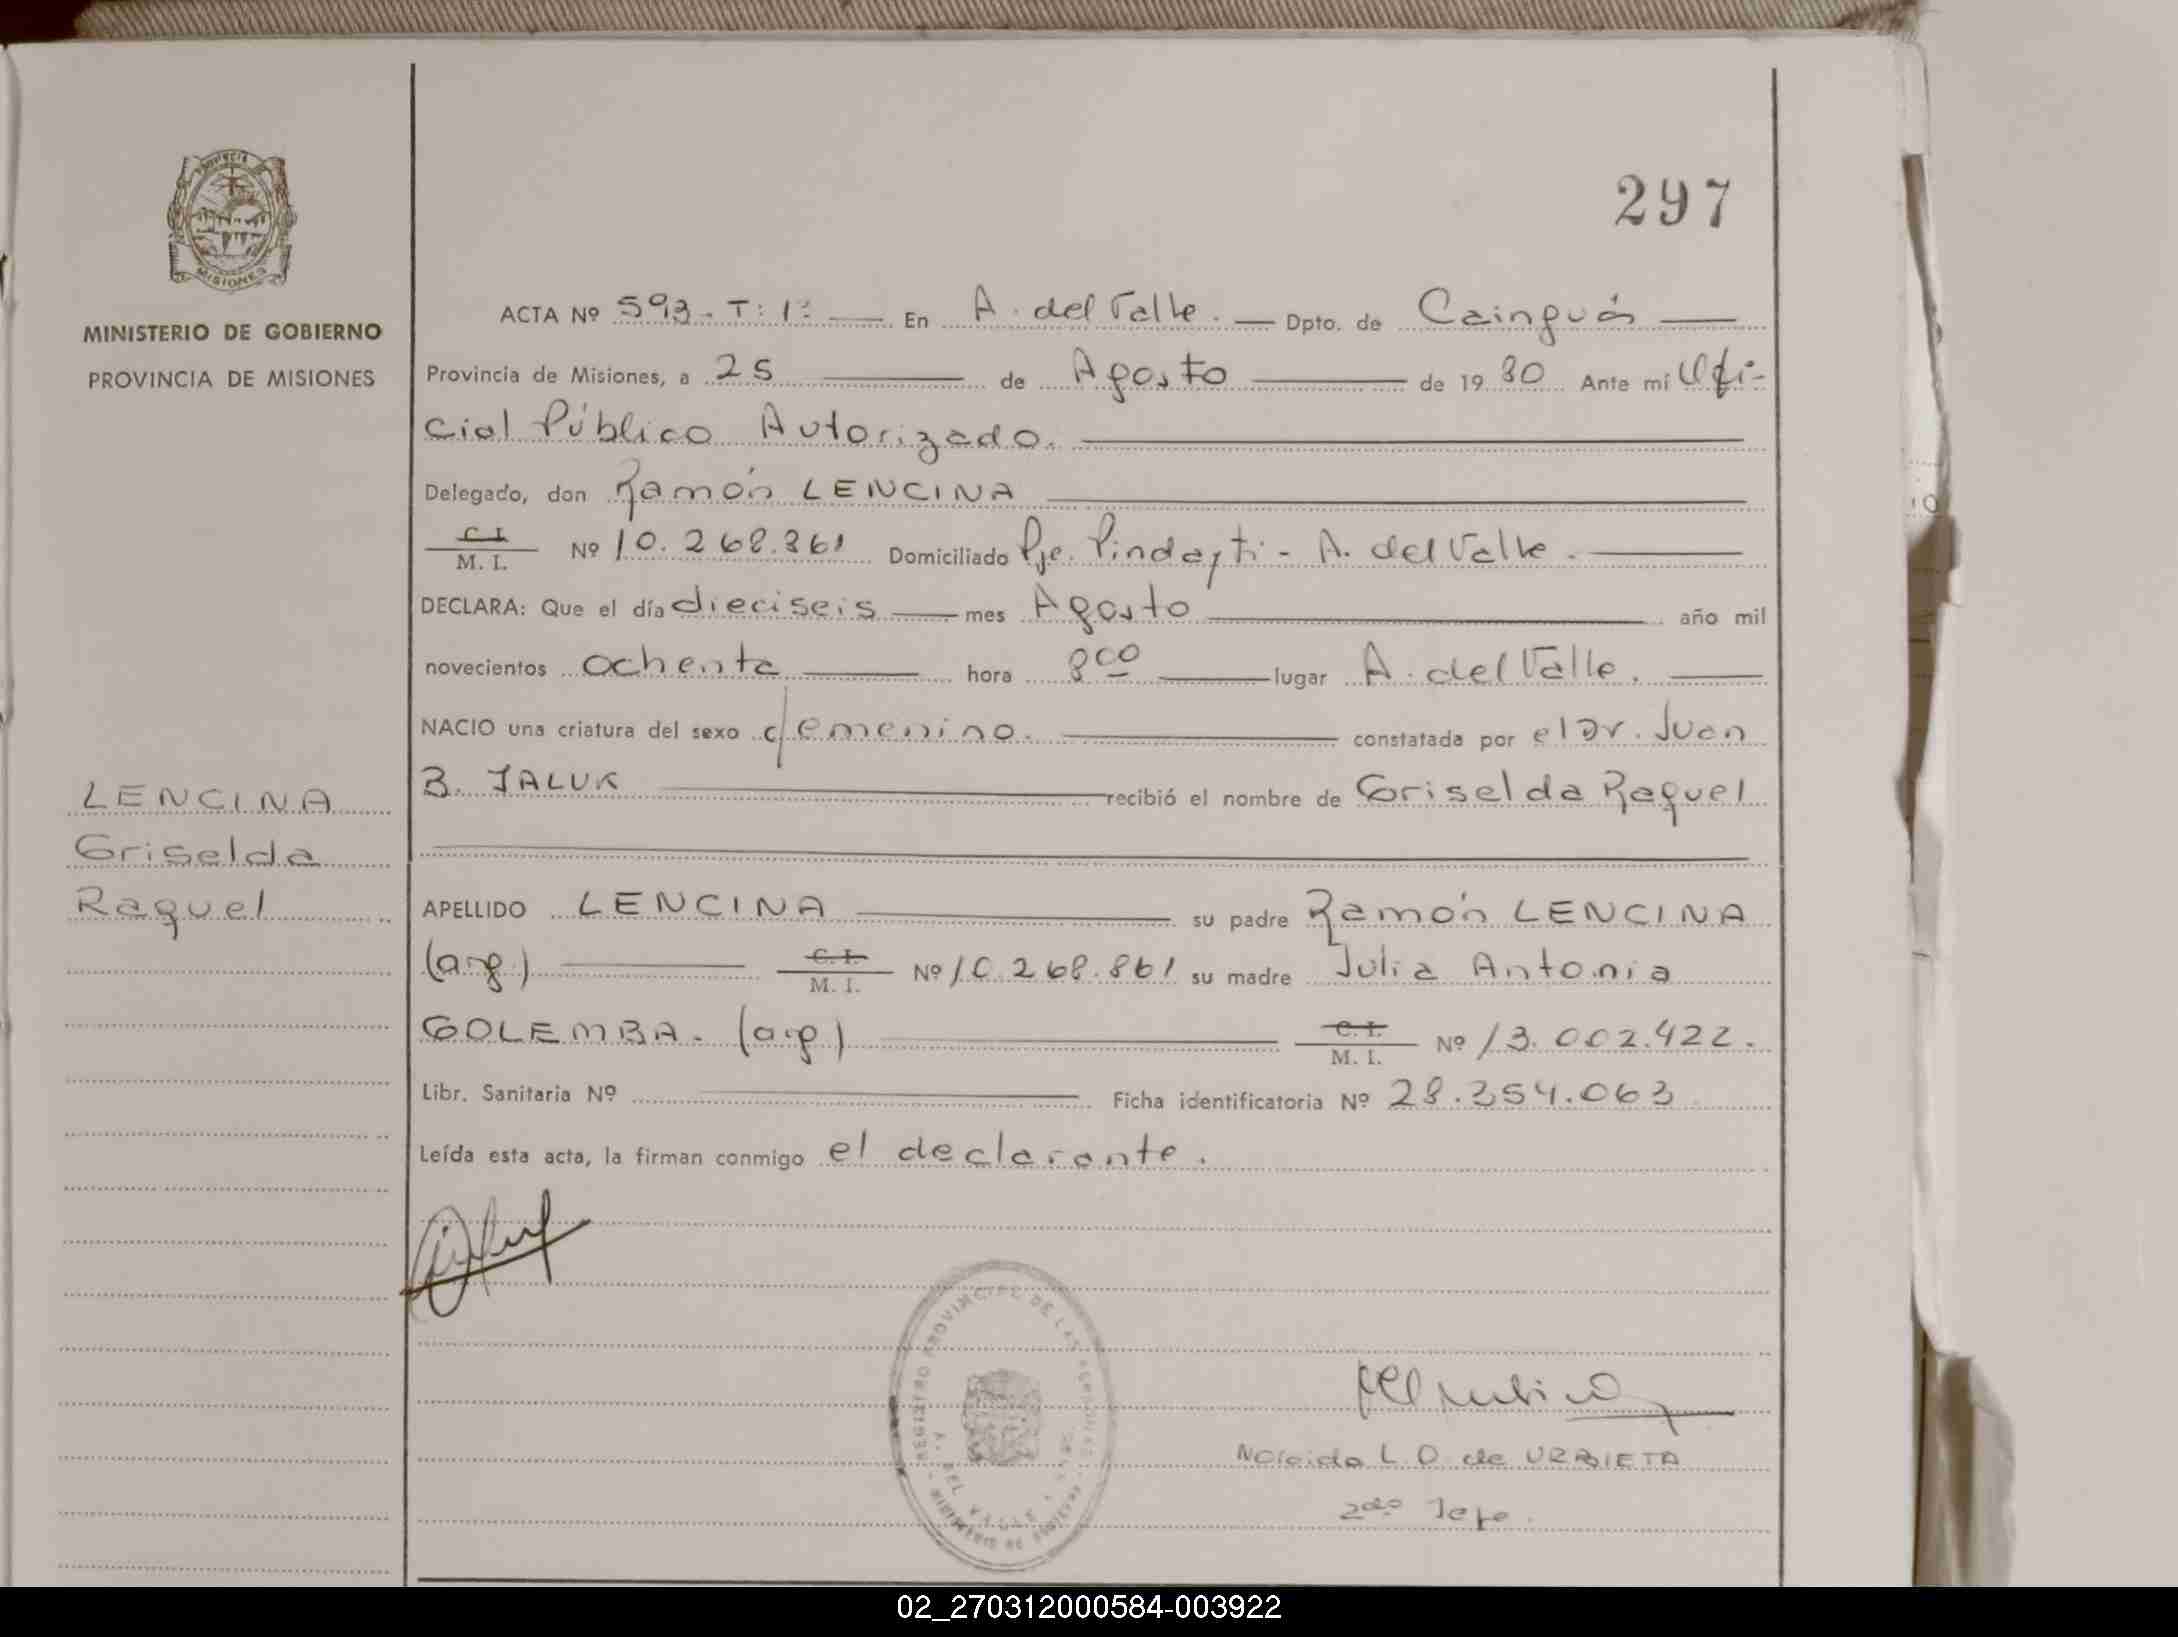 297
MINISTERIO DE GOBIERNO
PROVINCIA DE MISIONES
ACTA Nº 593 - T: 1º En A. del Valle. Dpto. de Cainguás
Provincia de Misiones, a 25 de Agosto de 19 80 Ante mí Ofi-
cial Público Autorizado.
Delegado, don Ramón LENCINA
C. I.
M. I. Nº 10.268.861 Domiciliado Pje. Pindayti - A. del Valle.
DECLARA: Que el día dieciseis mes Agosto año mil
novecientos ochenta hora 8 00 lugar A. del Valle.
NACIO una criatura del sexo femenino. constatada por el Dr. Juan
B. JALUK recibió el nombre de Griselda Raquel
LENCINA
Griselda
Raquel
APELLIDO LENCINA su padre Ramón LENCINA
(arg) C. I.
M. I. Nº 10.268.861 su madre Julia Antonia
GOLEMBA. (arg) C. I.
M. I. Nº 13.002.422.
Libr. Sanitaria Nº Ficha identificatoria Nº 28.354.063
Leída esta acta, la firman conmigo el declarante.
REGISTRO PROVINCIAL DE LAS PERSONAS
A. DEL VALLE
MINISTERIO DE GOBIERNO
L. O. de URBIETA
2do Jefe.
02_270312000584-003922